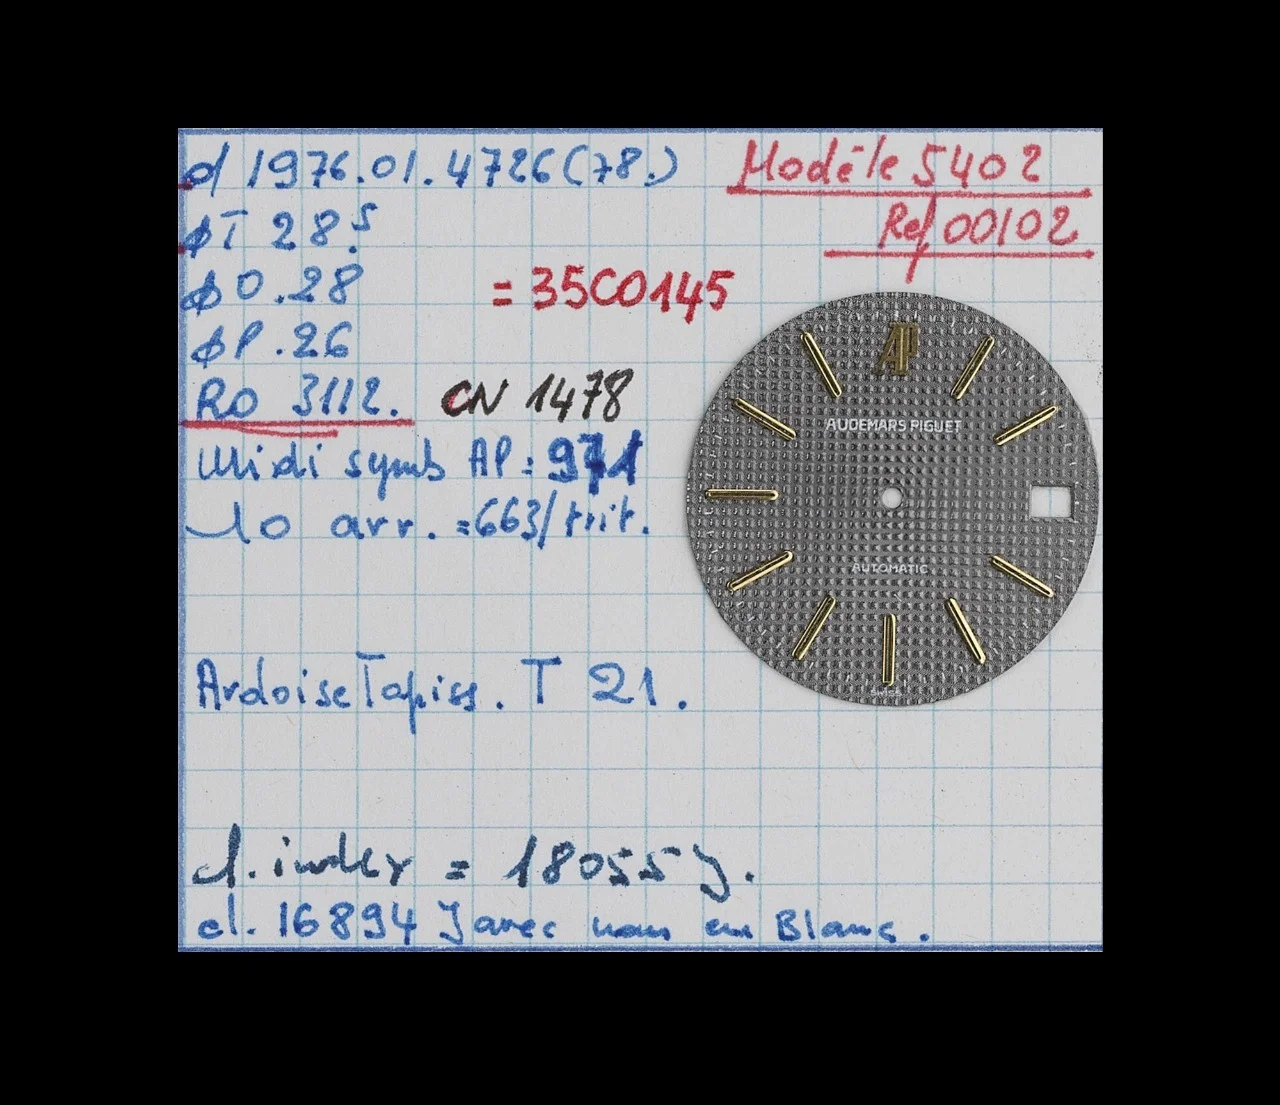 d 1976.01.4726(78.)
Modèle 5402
Ref 00102
φT 28.5
φO.28
= 35C0145
φP.26
RO 3112. CN 1478
Midi symb AP: 971
10 arr. =663/trit.
Ardoise Tapiss. T 21.
cl. index = 18055 J.
cl. 16894 J avec nom en Blanc.
AP
AUDEMARS PIGUET
AUTOMATIC
SWISS